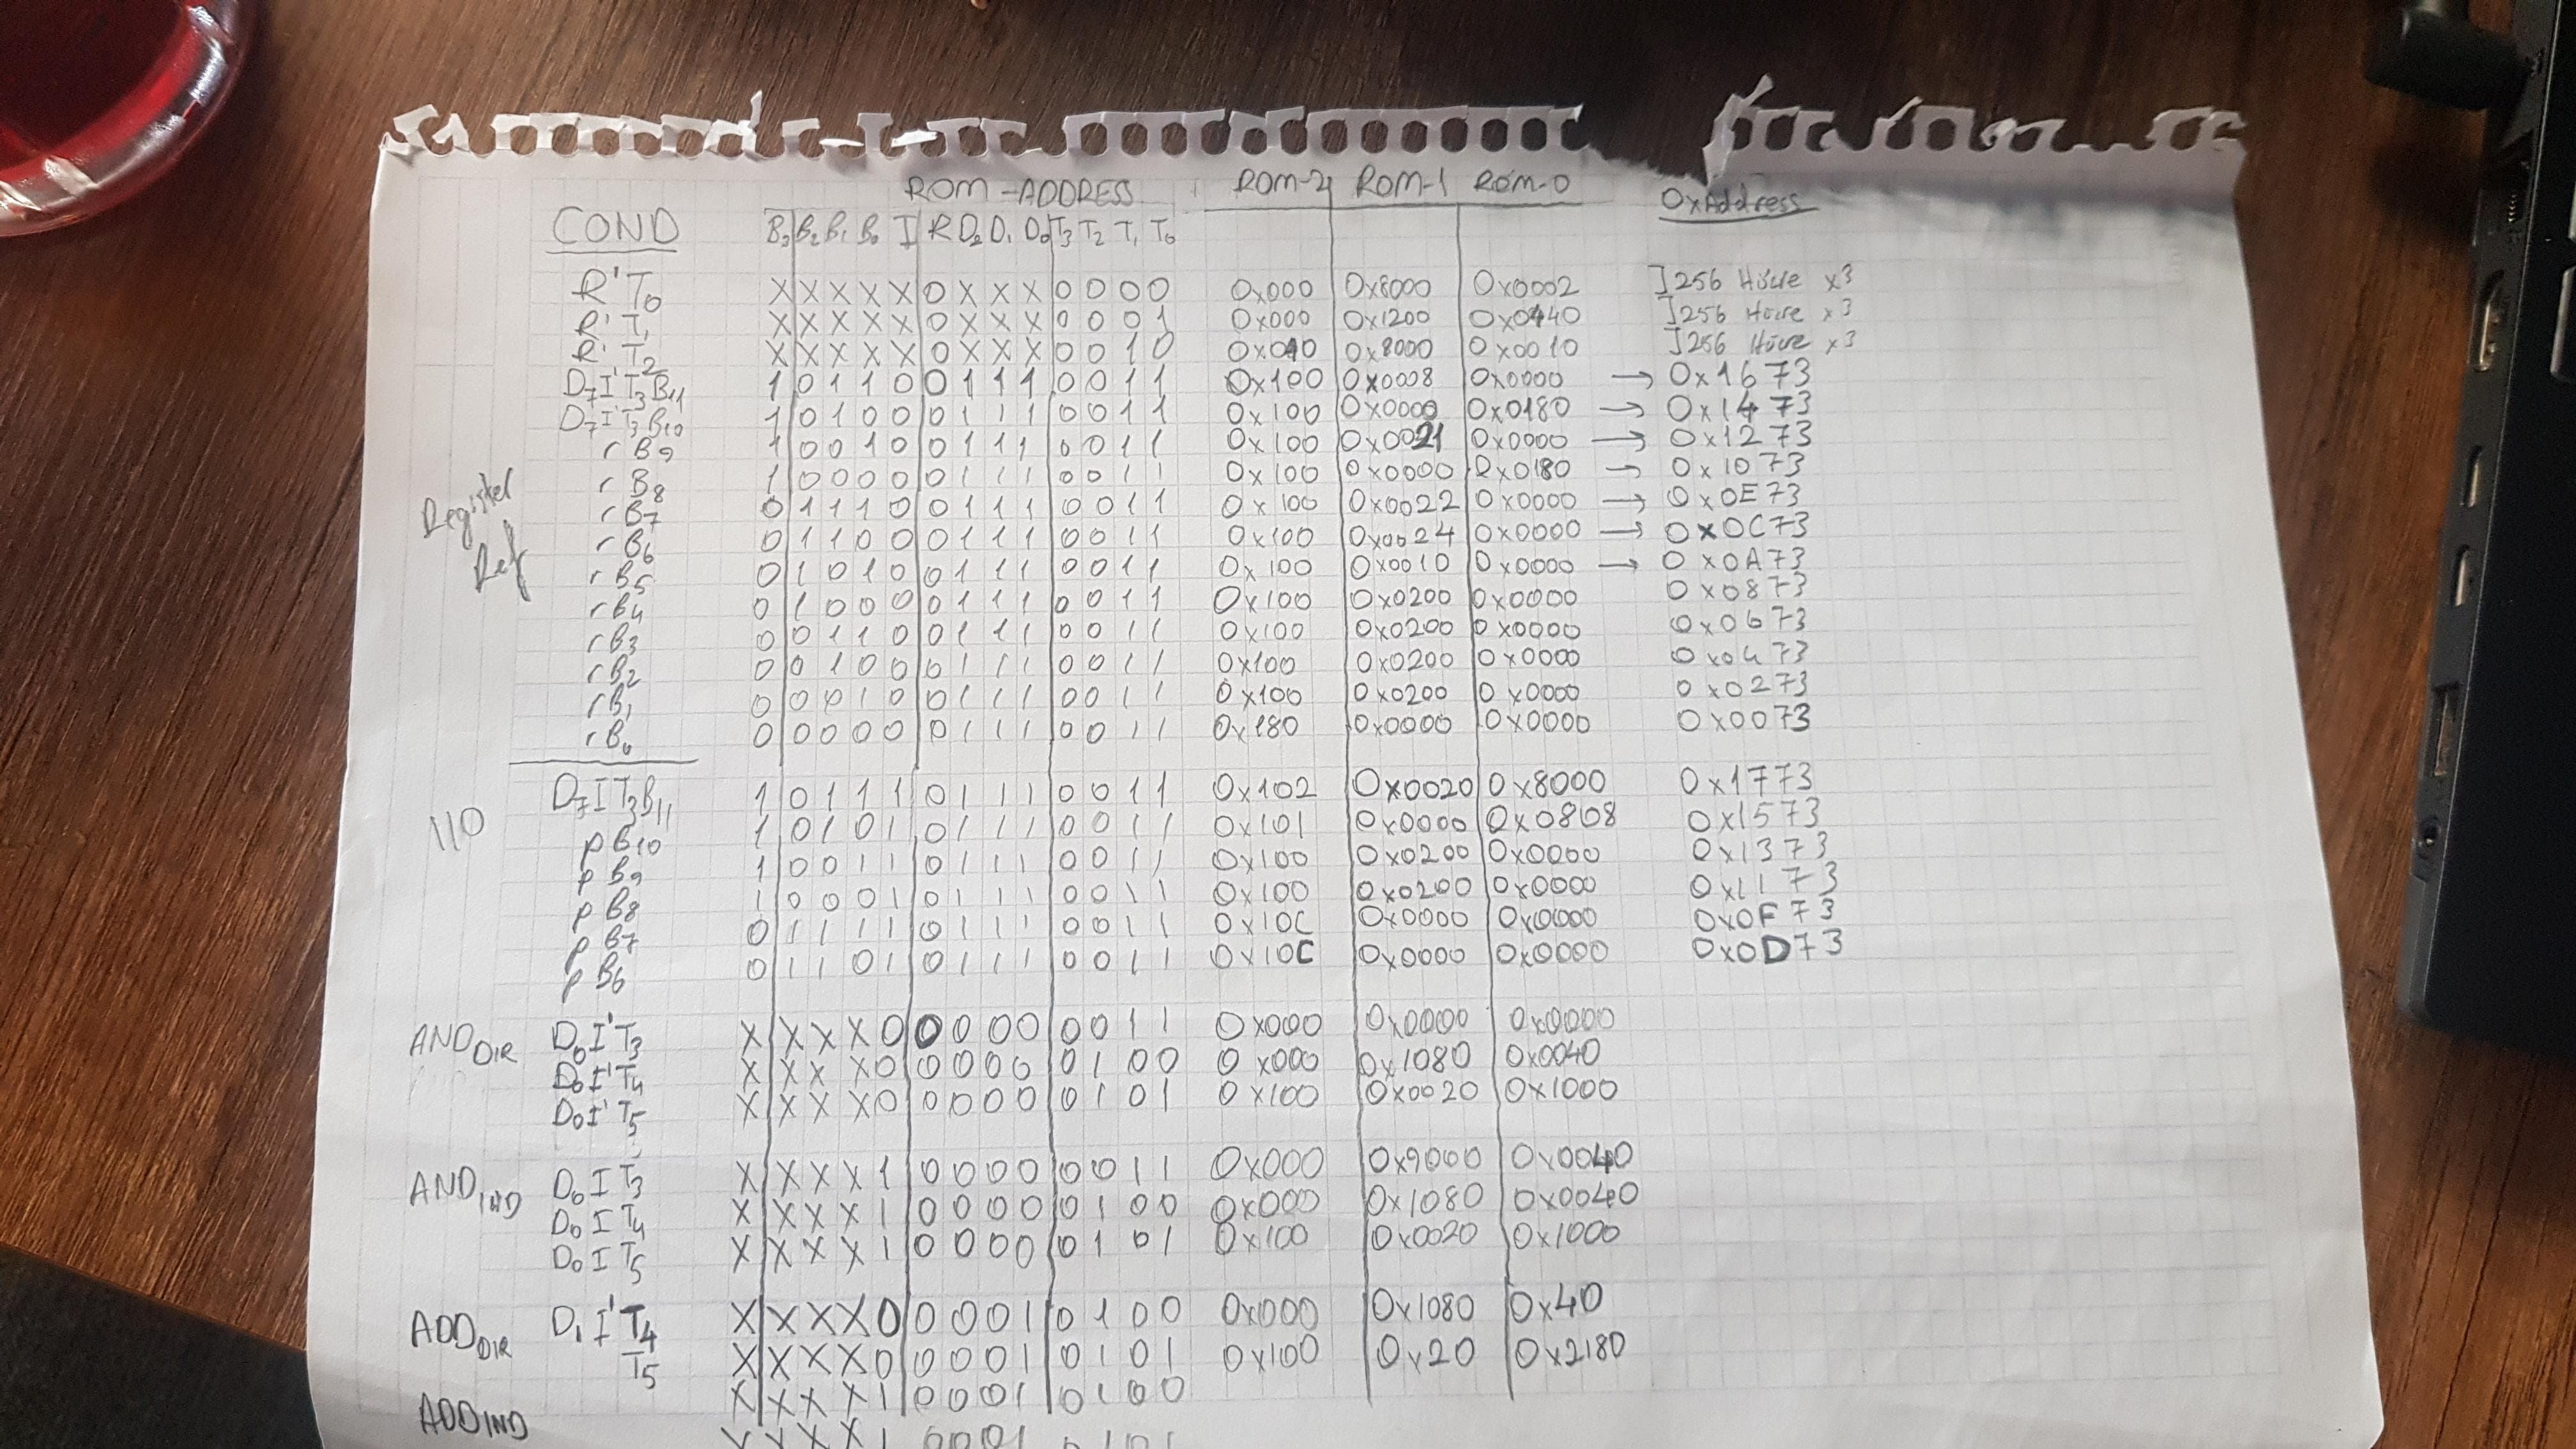 ROM-ADDRESS ROM-2 ROM-1 ROM-0 0xAddress
COND B3 B2 B1 B0 I R D2 D1 D0 T3 T2 T1 T0
R'T0 X X X X X 0 X X X 0 0 0 0 0x000 0x8000 0x0002 ]256 Hücre x3
R'T1 X X X X X 0 X X X 0 0 0 1 0x000 0x1200 0x0440 ]256 Hücre x3
R'T2 X X X X X 0 X X X 0 0 1 0 0x040 0x8000 0x0010 ]256 Hücre x3
D7I'T3B11 1 0 1 1 0 0 1 1 1 0 0 1 1 0x100 0x0008 0x0000 → 0x1673
D7I'T3B10 1 0 1 0 0 0 1 1 1 0 0 1 1 0x100 0x0000 0x0180 → 0x1473
r B9 1 0 0 1 0 0 1 1 1 0 0 1 1 0x100 0x0021 0x0000 → 0x1273
r B8 1 0 0 0 0 0 1 1 1 0 0 1 1 0x100 0x0000 0x0180 → 0x1073
Register Ref
r B7 0 1 1 1 0 0 1 1 1 0 0 1 1 0x100 0x0022 0x0000 → 0x0E73
r B6 0 1 1 0 0 0 1 1 1 0 0 1 1 0x100 0x0024 0x0000 → 0x0C73
r B5 0 1 0 1 0 0 1 1 1 0 0 1 1 0x100 0x0010 0x0000 → 0x0A73
r B4 0 1 0 0 0 0 1 1 1 0 0 1 1 0x100 0x0200 0x0000 0x0873
r B3 0 0 1 1 0 0 1 1 1 0 0 1 1 0x100 0x0200 0x0000 0x0673
r B2 0 0 1 0 0 0 1 1 1 0 0 1 1 0x100 0x0200 0x0000 0x0473
r B1 0 0 0 1 0 0 1 1 1 0 0 1 1 0x100 0x0200 0x0000 0x0273
r B0 0 0 0 0 0 0 1 1 1 0 0 1 1 0x180 0x0000 0x0000 0x0073
D7IT3B11 1 0 1 1 1 0 1 1 1 0 0 1 1 0x102 0x0020 0x8000 0x1773
I/O p B10 1 0 1 0 1 0 1 1 1 0 0 1 1 0x101 0x0000 0x0808 0x1573
p B9 1 0 0 1 1 0 1 1 1 0 0 1 1 0x100 0x0200 0x0000 0x1373
p B8 1 0 0 0 1 0 1 1 1 0 0 1 1 0x100 0x0200 0x0000 0x1173
p B7 0 1 1 1 1 0 1 1 1 0 0 1 1 0x10C 0x0000 0x0000 0x0F73
p B6 0 1 1 0 1 0 1 1 1 0 0 1 1 0x10C 0x0000 0x0000 0x0D73
ANDDIR D0I'T3 X X X X 0 0 0 0 0 0 0 1 1 0x000 0x0000 0x0000
D0I'T4 X X X X 0 0 0 0 0 0 1 0 0 0x000 0x1080 0x0040
D0I'T5 X X X X 0 0 0 0 0 0 1 0 1 0x100 0x0020 0x1000
ANDIND D0IT3 X X X X 1 0 0 0 0 0 0 1 1 0x000 0x9000 0x0040
D0IT4 X X X X 1 0 0 0 0 0 1 0 0 0x000 0x1080 0x0040
D0IT5 X X X X 1 0 0 0 0 0 1 0 1 0x100 0x0020 0x1000
ADDDIR D1I'T4 X X X X 0 0 0 0 1 0 1 0 0 0x000 0x1080 0x40
T5 X X X X 0 0 0 0 1 0 1 0 1 0x100 0x20 0x2180
ADDIND X X X X 1 0 0 0 1 0 1 0 0
X X X X 1 0 0 0 1 0 1 0 1